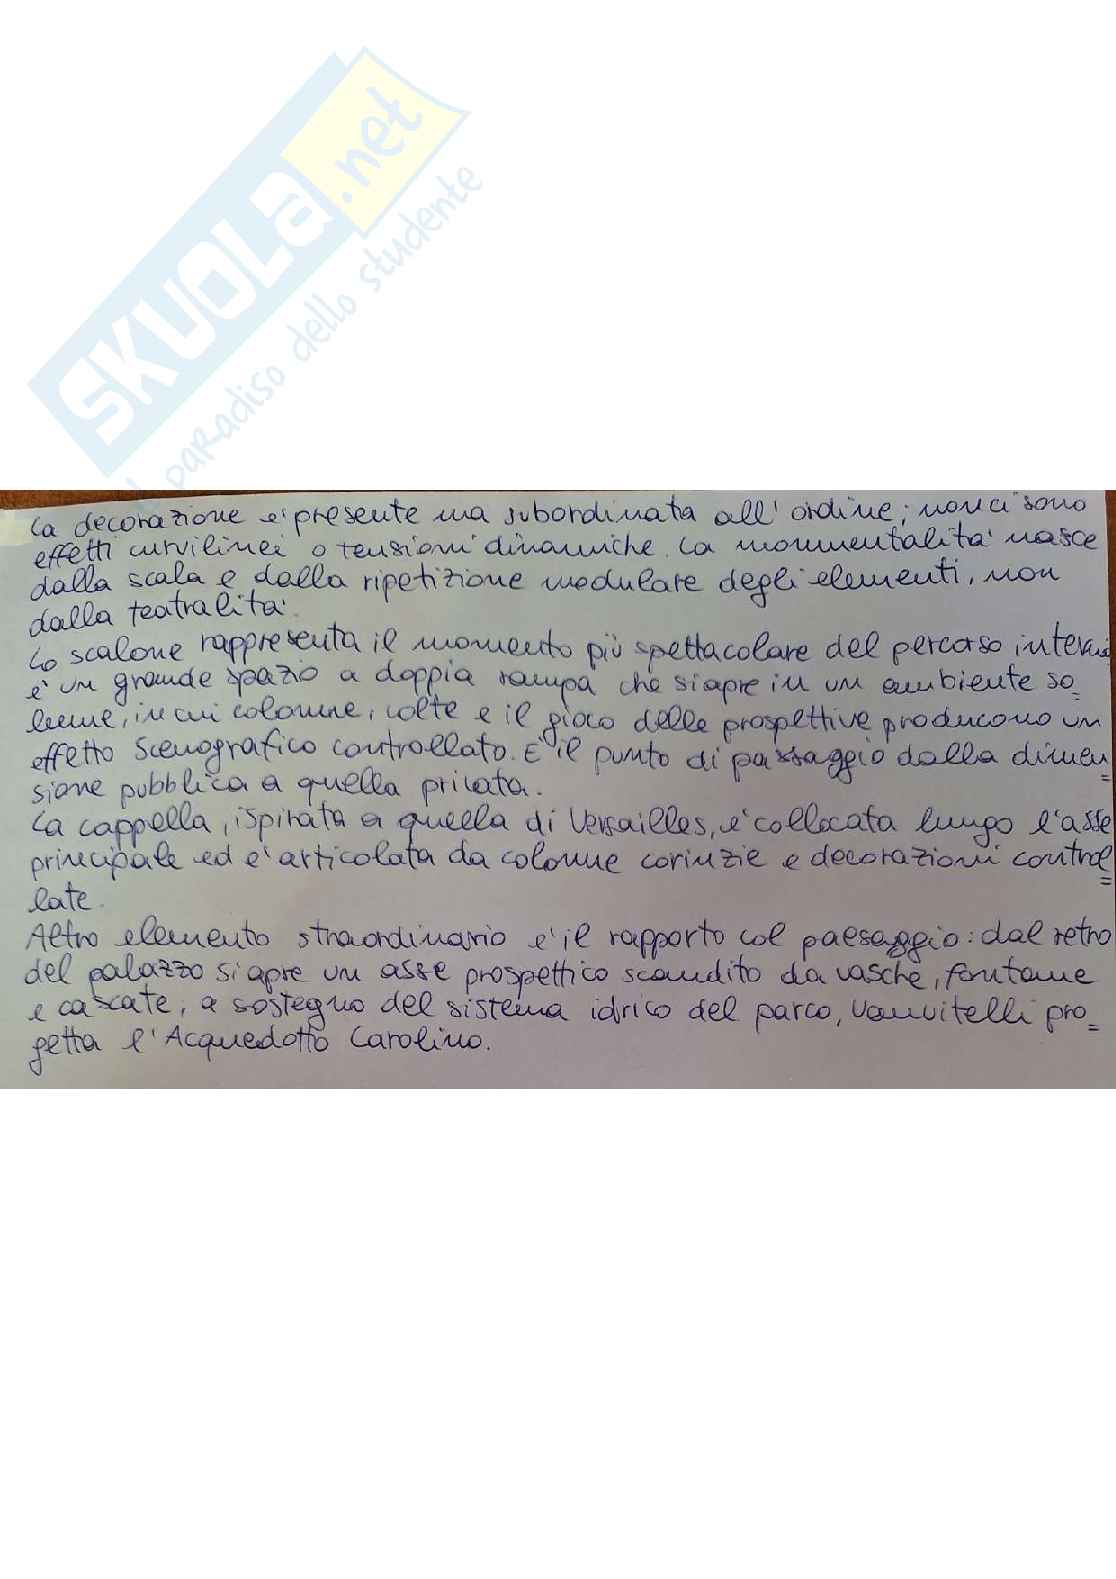 SKUOLA.net
paradiso dello studente
La decorazione è presente ma subordinata all'ordine; non ci sono
effetti curvilinei o tensioni dinamiche. La monumentalità nasce
dalla scala e dalla ripetizione modulare degli elementi, non
dalla teatralità.
Lo scalone rappresenta il momento più spettacolare del percorso interno
è un grande spazio a doppia rampa che si apre in un ambiente so=
lenne, in cui colonne, volte e il gioco delle prospettive producono un
effetto scenografico controllato. È il punto di passaggio dalla dimen=
sione pubblica a quella privata.
La cappella, ispirata a quella di Versailles, è collocata lungo l'asse
principale ed è articolata da colonne corinzie e decorazioni control=
late.
Altro elemento straordinario è il rapporto col paesaggio: dal retro
del palazzo si apre un asse prospettico scandito da vasche, fontane
e cascate; a sostegno del sistema idrico del parco, Vanvitelli pro=
getta l'Acquedotto Carolino.